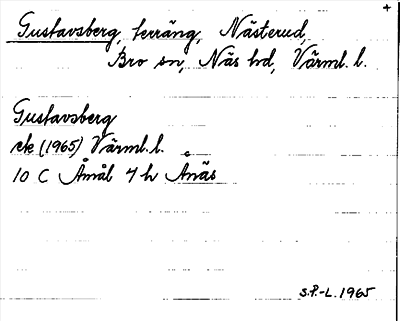 +
Gustavsberg, terräng, Nästerud,
Bro sn, Näs hd, Värml. l.
Gustavsberg
ek (1965) Värml. l.
10 C Åmål 7 h Ånäs
S.P.-L. 1965